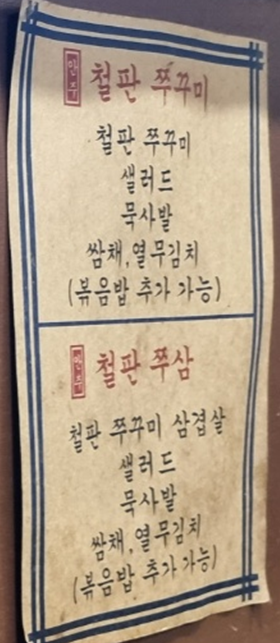 만족 철판 쭈꾸미
철판 쭈꾸미
샐러드
묵사발
쌈채,열무김치
(볶음밥 추가 가능)
만족 철판 쭈삼
철판 쭈꾸미 삼겹살
샐러드
묵사발
쌈채,열무김치
(볶음밥 추가 가능)